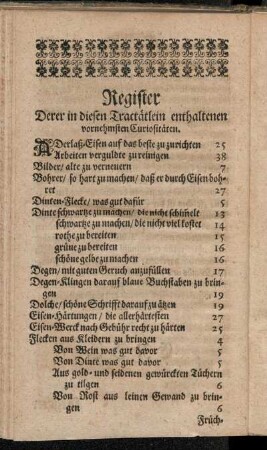 Register
Derer in diesen Tractätlein enthaltenen
vornehmsten Curiositäten.
ADerlaß-Eisen auf das beste zu zurichten 25
Arbeiten vergüldte zu reinigen 38
Bilder/ alte zu verneuern 7
Bohrer/ so hart zu machen/ daß er durch Eisen boh-
ret 27
Dinten-Flecke/ was gut dafür 5
Dinte schwartze zu machen/ die nicht schim̃elt 13
schwartze zu machen/ die nicht viel kostet 14
rothe zu bereiten 15
grüne zu bereiten 16
schöne gelbe zu machen 16
Degen/ mit guten Geruch anzufüllen 17
Degen-Klingen darauf blaue Buchstaben zu brin-
gen 19
Dolche/ schöne Schrifft darauf zu ätzen 19
Eisen-Härtungen/ die allerhärtesten 27
Eisen-Werck nach Gebühr recht zu härten 25
Flecken aus Kleidern zu bringen 4
Von Wein was gut davor 5
Von Dinte was gut davor 5
Aus gold- und seidenen gewürckten Tüchern
zu tilgen 6
Von Rost aus leinen Gewand zu brin-
gen 6
Früch-